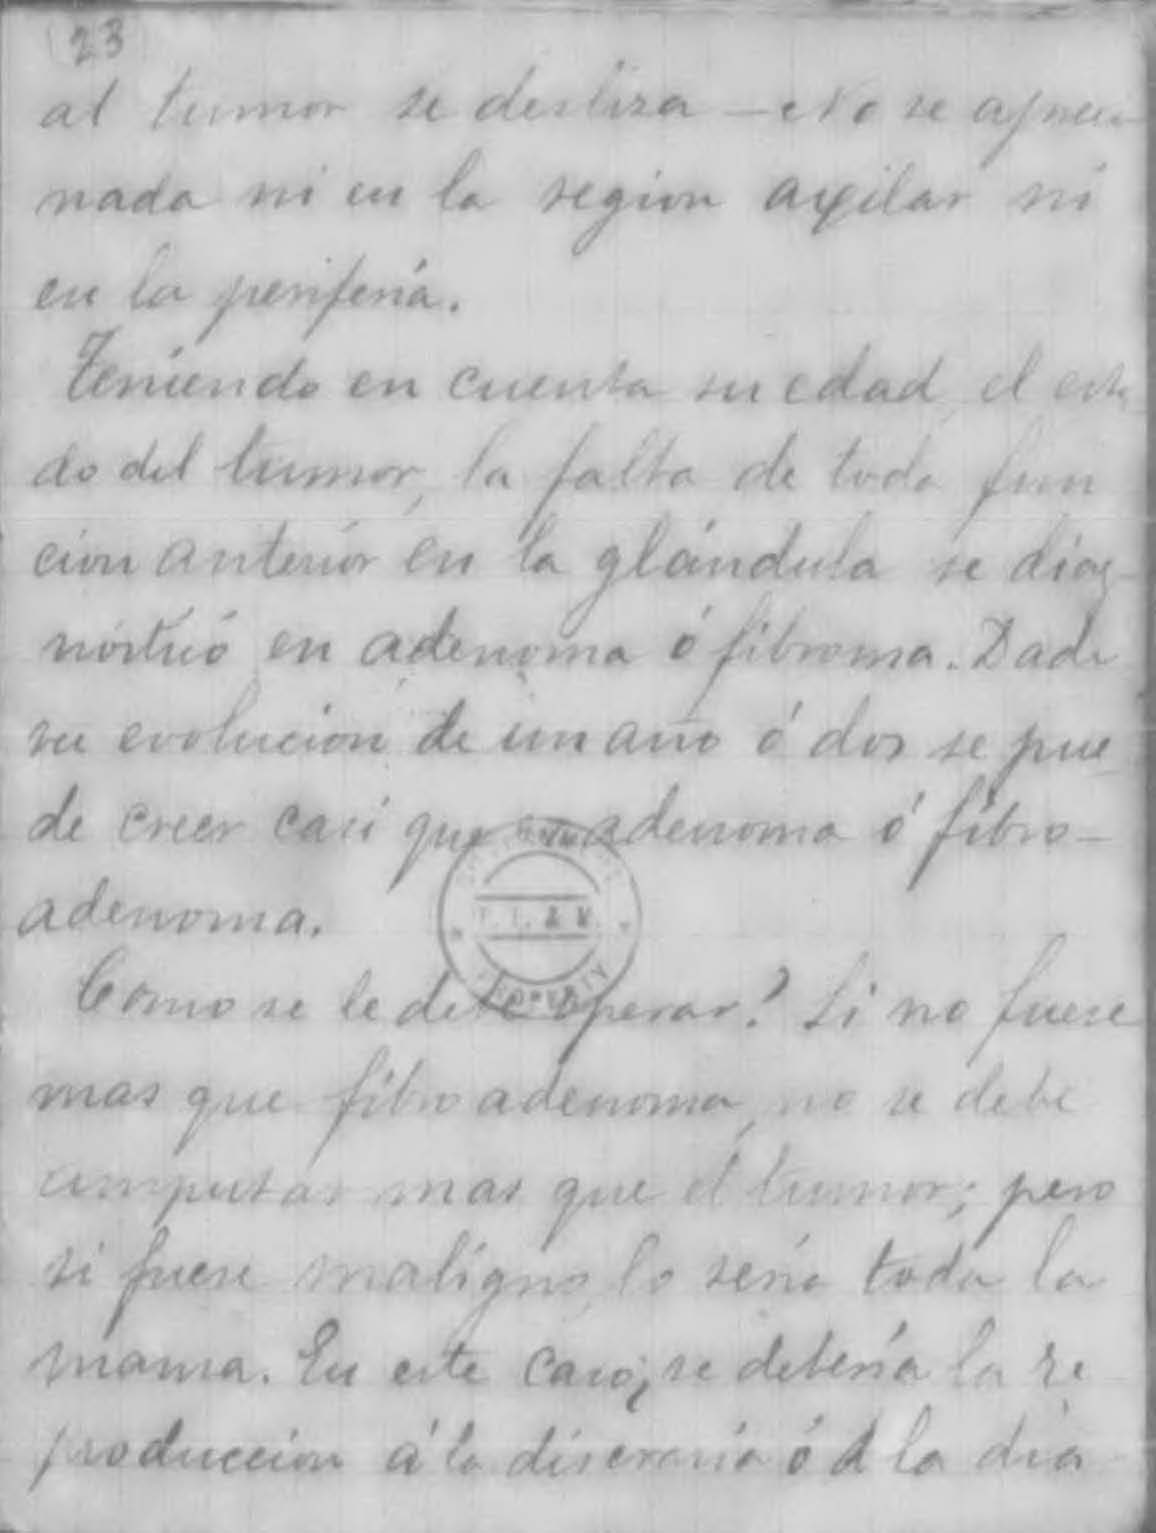 23
al tumor se desliza — No se aprecia
nada ni en la region axilar ni
en la periferia.
Teniendo en cuenta su edad, el esta
do del tumor, la falta de toda fun
cion anterior en la glándula se diag-
nósticó en adenoma ó fibroma. Dada
su evolucion de un año ó dos se pue
de creer casi que adenoma ó fibro-
adenoma.
Como se le debe operar? Si no fuese
mas que fibro adenoma, no se debe
amputar mas que el tumor; pero
si fuese maligno, lo seria toda la
mama. En este caso, se deberia la re
produccion á la discrasia ó á la diá